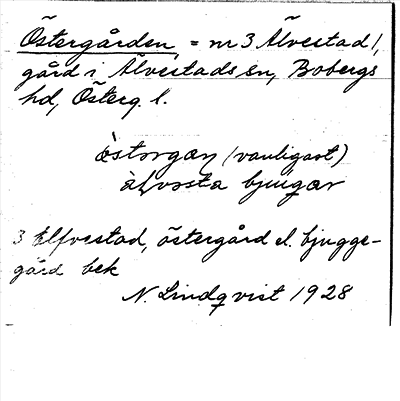 Östergården, = nr 3 Älvestad /,
gård i Älvestads sn, Bobergs
hd, Österg. l.
òstərgaŋ (vanligast)
àlvəsta bjuŋgar
3 Elfvestad, östergård el. bjugge-
gård bek
N. Lindqvist 1928